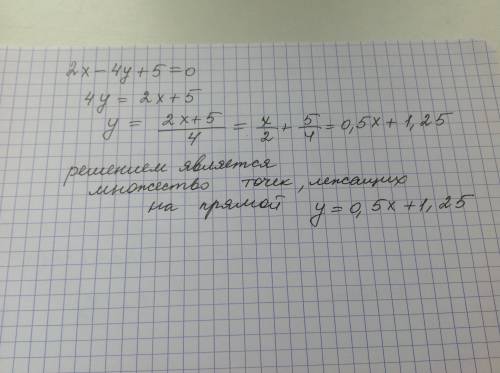 2x - 4y + 5 = 0
4y = 2x + 5
y = (2x+5)/4 = x/2 + 5/4 = 0,5x + 1,25
решением является
множество точек, лежащих
на прямой y = 0,5x + 1,25